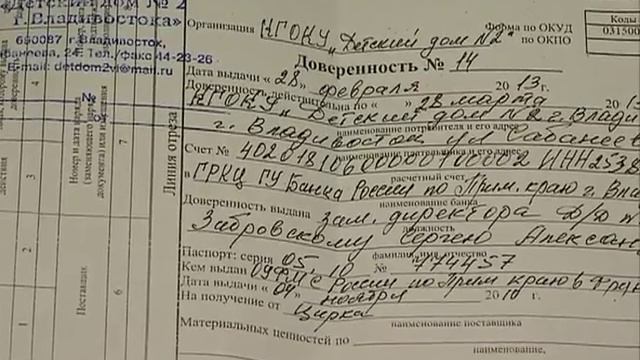 «Детский дом № 2
г. Владивостока»
690087 г. Владивосток,
24. Тел./факс 44-23-26
E-mail: detdom2vl@mail.ru
Организация КГОКУ „Детский дом №2"
Форма по ОКУД
по ОКПО
Коды
031500
Доверенность № 14
Дата выдачи « 28 » февраля 2013 г.
Доверенность действительна по « » 28 марта
КГОКУ „Детский дом №2 г. Влади
наименование потребителя и его адрес
г. Владивосток ул
наименование плательщика и его адрес
Счет № ИНН 2538
расчетный счет
в ГРКЦ ГУ Банка России по Прим. краю г. Вла
наименование банка
Доверенность выдана зам. директора
должность
Забровскому Сергею Алексан
фамилия, имя, отчество
Паспорт: серия 05 10 № 774457
Кем выдан ОУФМС России по Прим краю в
Дата выдачи « 09 » ноября 2010 г.
На получение от Цирка
наименование поставщика
Материальных ценностей по
наименование,
Линия отреза
Поставщик
Номер и дата наряда
(заменяющего наряд
документа) или извещения
1
2
3
4
6
7